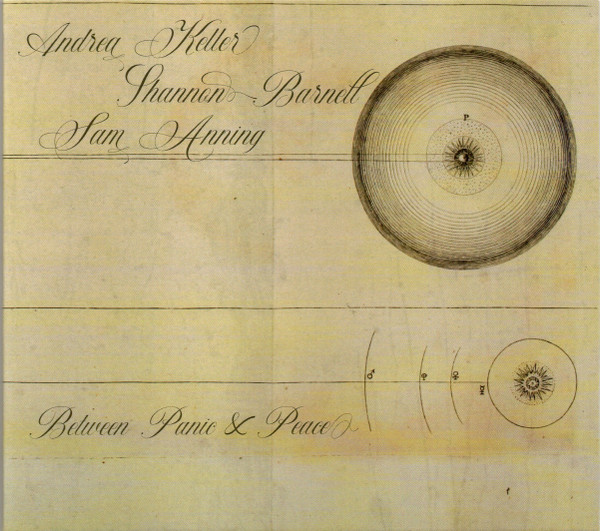 Andrea Keller
Shannon Barnett
Sam Anning
P.
♂ ⊕ ♀ ☿
Between Panic & Peace